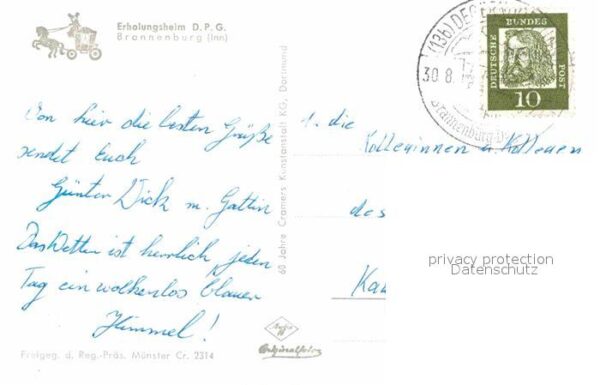 Erholungsheim D. P. G.
Brannenburg (Inn)
Von hier die besten Grüße
sendet Euch
Günter Dick m. Gattin
Das Wetter ist herrlich, jeden
Tag ein wolkenlos blauer
Himmel!
Freigeg. d. Reg.-Präs. Münster Cr. 2314
60 Jahre Cramers Kunstanstalt KG, Dortmund
Agfa
Originalfoto
(13b)
30.8.
Brannenburg
DEUTSCHE BUNDES POST
10
die
Kolleginnen u. Kollegen
des
privacy protection
Datenschutz